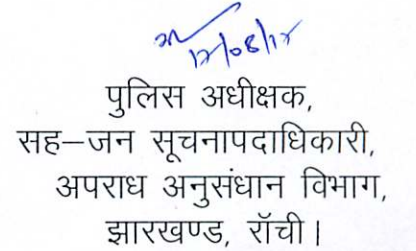 12/08/17
पुलिस अधीक्षक,
सह–जन सूचनापदाधिकारी,
अपराध अनुसंधान विभाग,
झारखण्ड, रॉची।